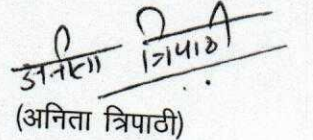 अनिता त्रिपाठी
(अनिता त्रिपाठी)